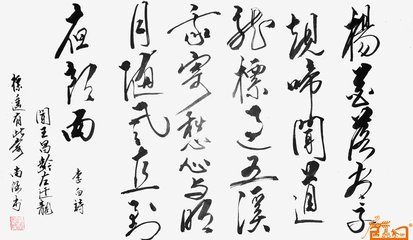 楊花落尽子
規啼聞道
龍標過五溪
我寄愁心与明
月随风直到
夜郎西
李白詩
聞王昌齡左迁龍
標遥有此寄